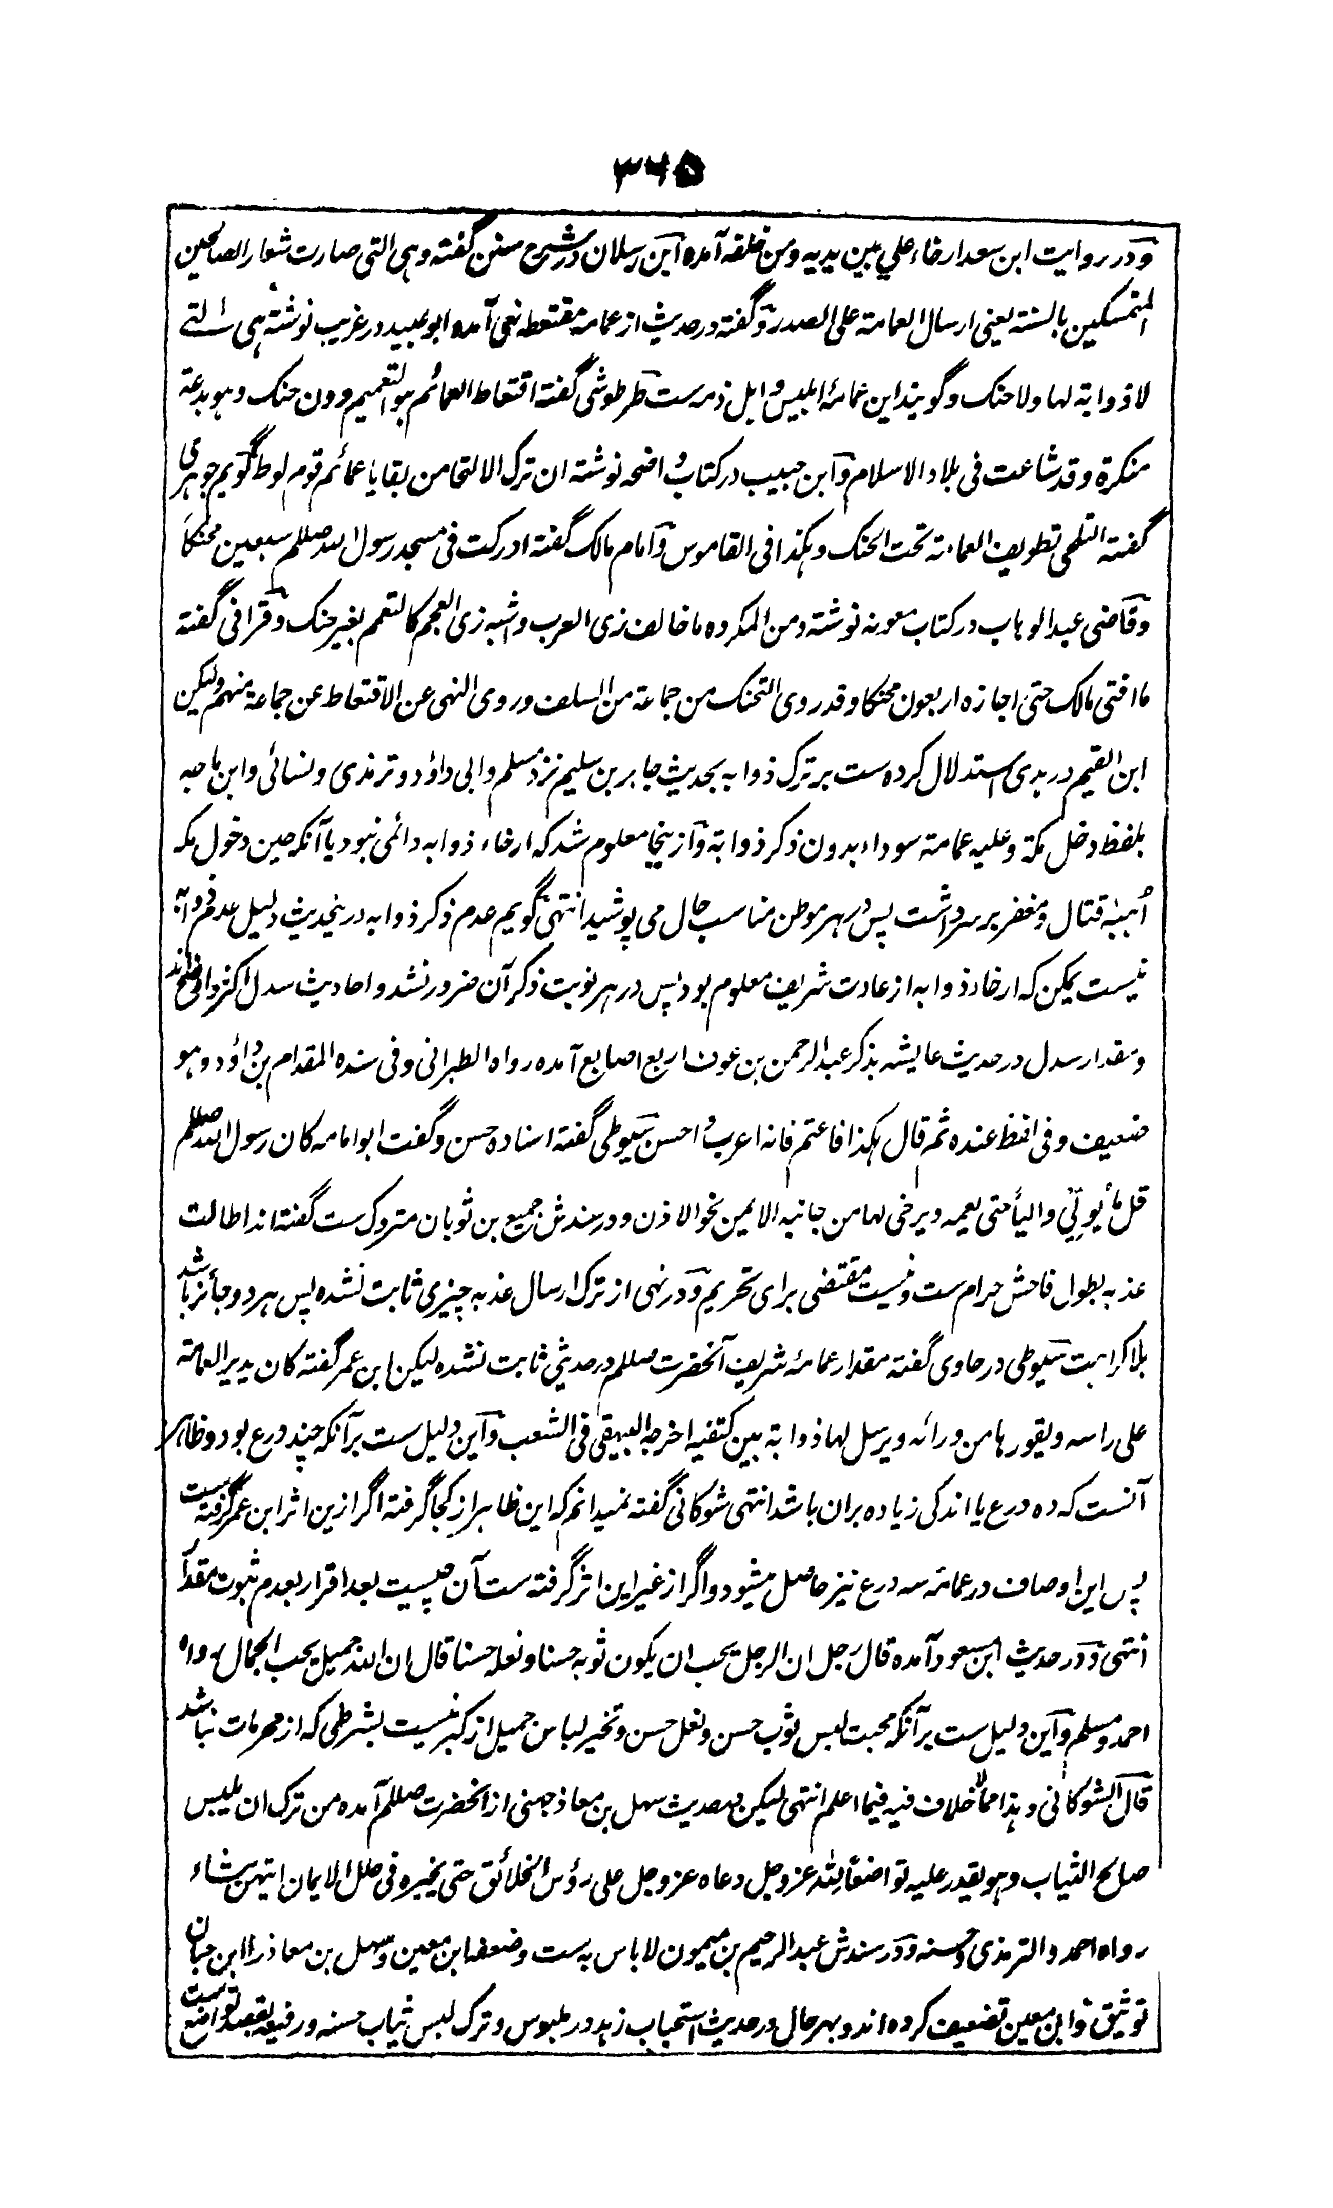 ۳۶۵
و در روایت ابن سعد ارخاء علی بین یدیه و من خلفه آمده ابن رسلان در شرح سنن گفته و هی التی صارت شعار الصالحین
المتمسکین بالسنة یعنی ارسال العمامة علی الصدر و گفته در حدیث از عمامه مقتعطه نهی آمده ابو عبید در غریب نوشته هی التے
لا ذوابة لها ولا حنک و گویند این عمامهٔ ابلیس و اهل ذمه ست طرطوشی گفته اقتعاط العمائم هو التعمیم دون حنک و هو بدعة
منکرة و قد شاعت فی بلاد الاسلام و ابن حبیب در کتاب واضحه نوشته ان ترک الالتحا من بقایا عمائم قوم لوط گویم جوهری
گفته التلحی تطویف العمامة تحت الحنک و هکذا فی القاموس و امام مالک گفته ادرکت فی مسجد رسول الله صللم سبعین محنکا
و قاضی عبدالوهاب در کتاب معونه نوشته و من المکروه ما خالف زی العرب و اشبه زی العجم کالتعمم بغیر حنک و قرافی گفته
ما افتی مالک حتی اجازه اربعون محنکا و قد روی التحنک من جماعة من السلف و روی النهی عن الاقتعاط عن جماعة منهم ولیکن
ابن القیم در هدی استدلال کرده ست بر ترک ذوابه بحدیث جابر بن سلیم نزد مسلم و ابی داؤد و ترمذی و نسائی و ابن ماجه
بلفظ دخل مکة و علیه عمامة سوداء بدون ذکر ذوابة و ازینجا معلوم شد که ارخاء ذوابه دائمی نبود یا آنکه حین دخول مکه
اُهبهٔ قتال و مغفر بر سر داشت پس در هر موطن مناسب حال می پوشید انتهی گویم عدم ذکر ذوابه درینحدیث دلیل عدم ذوابه
نیست یمکن که ارخاء ذوابه از عادت شریف معلوم بود پس در هر نوبت ذکر آن ضرور نشد و احادیث سدل اکثر و اصح اند
و مقدار سدل در حدیث عایشه بذکر عبدالرحمن بن عوف اربع اصابع آمده رواه الطبرانی و فی سنده المقدام بن داؤد و هو
ضعیف و فی لفظ عنده ثم قال هکذا فاعتم فانه اعرب و احسن سیوطی گفته اسناده حسن و گفت ابو امامه کان رسول الله صللم
قل ما یولی والیا حتی یعمه و یرخی لها من جانبه الایمن نحو الاذن و در سندش جمیع بن ثوبان متروک ست گفته اند اطالت
عذبه بطول فاحش حرام ست و نیست مقتضی برای تحریم و در نهی از ترک ارسال عذبه چیزی ثابت نشده پس هر دو جائز باشد
بلا کراهت سیوطی در حاوی گفته مقدار عمامهٔ شریف آنحضرت صللم در حدیثی ثابت نشده لیکن ابن عمر گفته کان یدیر العمامة
علی راسه و یقورها من ورائه و یرسل لها ذوابة بین کتفیه اخرجه البیهقی فی الشعب و این دلیل ست بر آنکه چند درع بود و ظاهر
آنست که ده درع یا اندکی زیاده بران باشد انتهی شوکانی گفته نمیدانم که این ظاهر از کجا گرفته اگر ازین اثر ابن عمر گرفته ست
پس این اوصاف در عمامه سه درع نیز حاصل میشود و اگر از غیر این اثر گرفته ست آن چیست بعد اقرار بعدم ثبوت مقدار
انتهی و در حدیث ابن مسعود آمده قال رجل ان الرجل یحب ان یکون ثوبه حسنا و نعله حسنا قال ان الله جمیل یحب الجمال رواه
احمد و مسلم و این دلیل ست بر آنکه محبت لبس ثوب حسن و نعل حسن و تخیر لباس جمیل از کبر نیست بشرطی که از محرمات نباشد
قال الشوکانی و هذا مما لا خلاف فیه فیما اعلم انتهی لیکن بحدیث سهل بن معاذ جهنی از آنحضرت صللم آمده من ترک ان یلبس
صالح الثیاب و هو یقدر علیه تواضعا لله عز و جل دعاه عز و جل علی رؤس الخلائق حتی یخیره فی حلل الایمان ایتهن شاء
رواه احمد و الترمذی و حسنه و در سندش عبدالرحیم بن میمون لا باس به ست و ضعفه ابن معین و سهل بن معاذ را ابن حبان
توثیق و ابن معین تضعیف کرده اند و بهر حال در حدیث استحباب زهد در ملبوس و ترک لبس ثیاب حسنه و رفیعه بقصد تواضع ست